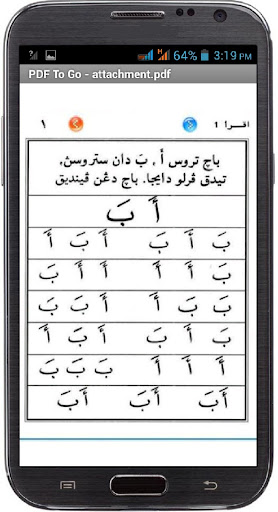 64% 3:19 PM
PDF To Go - attachment.pdf
اقرأ 1 ١
باچ تروس أَ , بَ دان ستروسڽ.
تيدق ڤرلو دايجا. باچ دڠن ڤينديق
أَ بَ
بَ أَ بَ أَ بَ أَ
بَ بَ أَ بَ أَ أَ
أَ أَ أَ بَ بَ بَ
أَبَ أَبَ أَبَ